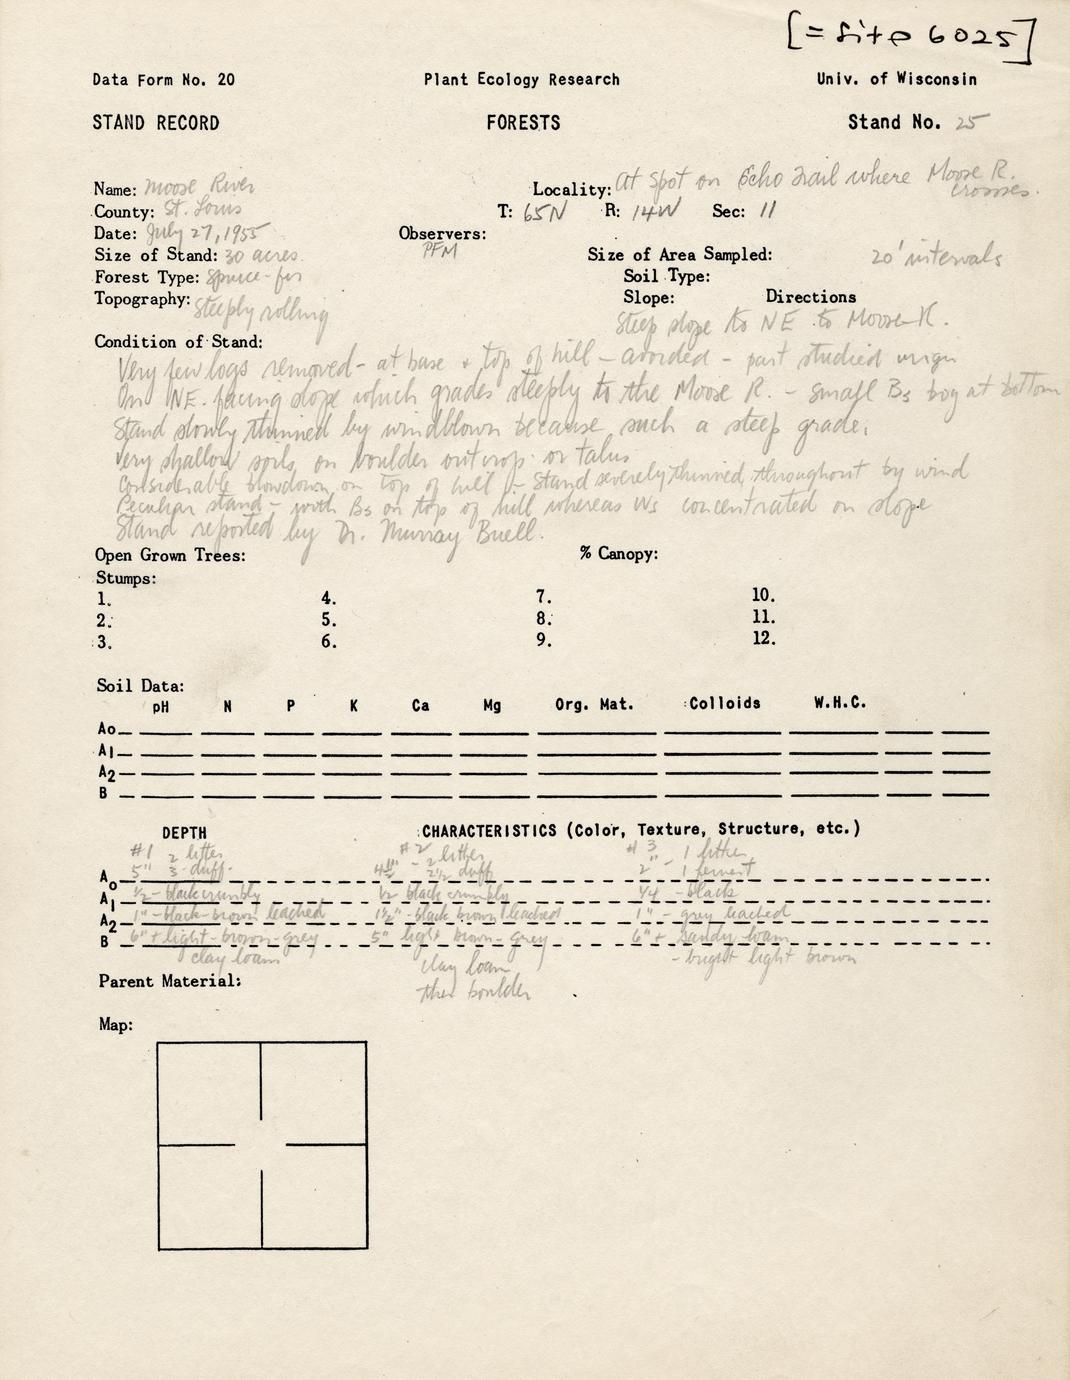 [= Site 6025]
Data Form No. 20 Plant Ecology Research Univ. of Wisconsin
STAND RECORD FORESTS Stand No. 25
Name: Moose River Locality: At spot on Echo Trail where Moose R. crosses.
County: St. Louis T: 65N R: 14W Sec: 11
Date: July 27, 1955 Observers: PFM
Size of Stand: 30 acres Size of Area Sampled: 20' intervals
Forest Type: Spruce-fir Soil Type:
Topography: Steeply rolling Slope: Directions
Steep slope to NE to Moose R.
Condition of Stand:
Very few logs removed - at base + top of hill - avoided - part studied virgin
On NE. facing slope which grades steeply to the Moose R. - small Bs bog at bottom
Stand slowly thinned by windblown because such a steep grade.
Very shallow soils, on boulder outcrop or talus
Considerable blowdown on top of hill - Stand severely thinned throughout by wind
Peculiar stand - with Bs on top of hill whereas Ws concentrated on slope
Stand reported by Dr. Murray Buell.
Open Grown Trees: % Canopy:
Stumps:
1. 4. 7. 10.
2. 5. 8. 11.
3. 6. 9. 12.
Soil Data:
pH N P K Ca Mg Org. Mat. Colloids W.H.C.
Ao
A1
A2
B
DEPTH CHARACTERISTICS (Color, Texture, Structure, etc.)
#1 2 litter #2 2 litter #3 1 litter
Ao 5" 3 duff 4½" - 2½ duff 2" - 1 ferment
A1 ½ - black crumbly ½ black crumbly ¼ - black
A2 1" - black-brown leached 1½" - black brown leached 1" - grey leached
B 6"+ light-brown-grey 5" light brown-grey 6"+ sandy loam
clay loam clay loam - bright light brown
Parent Material: then boulder
Map: